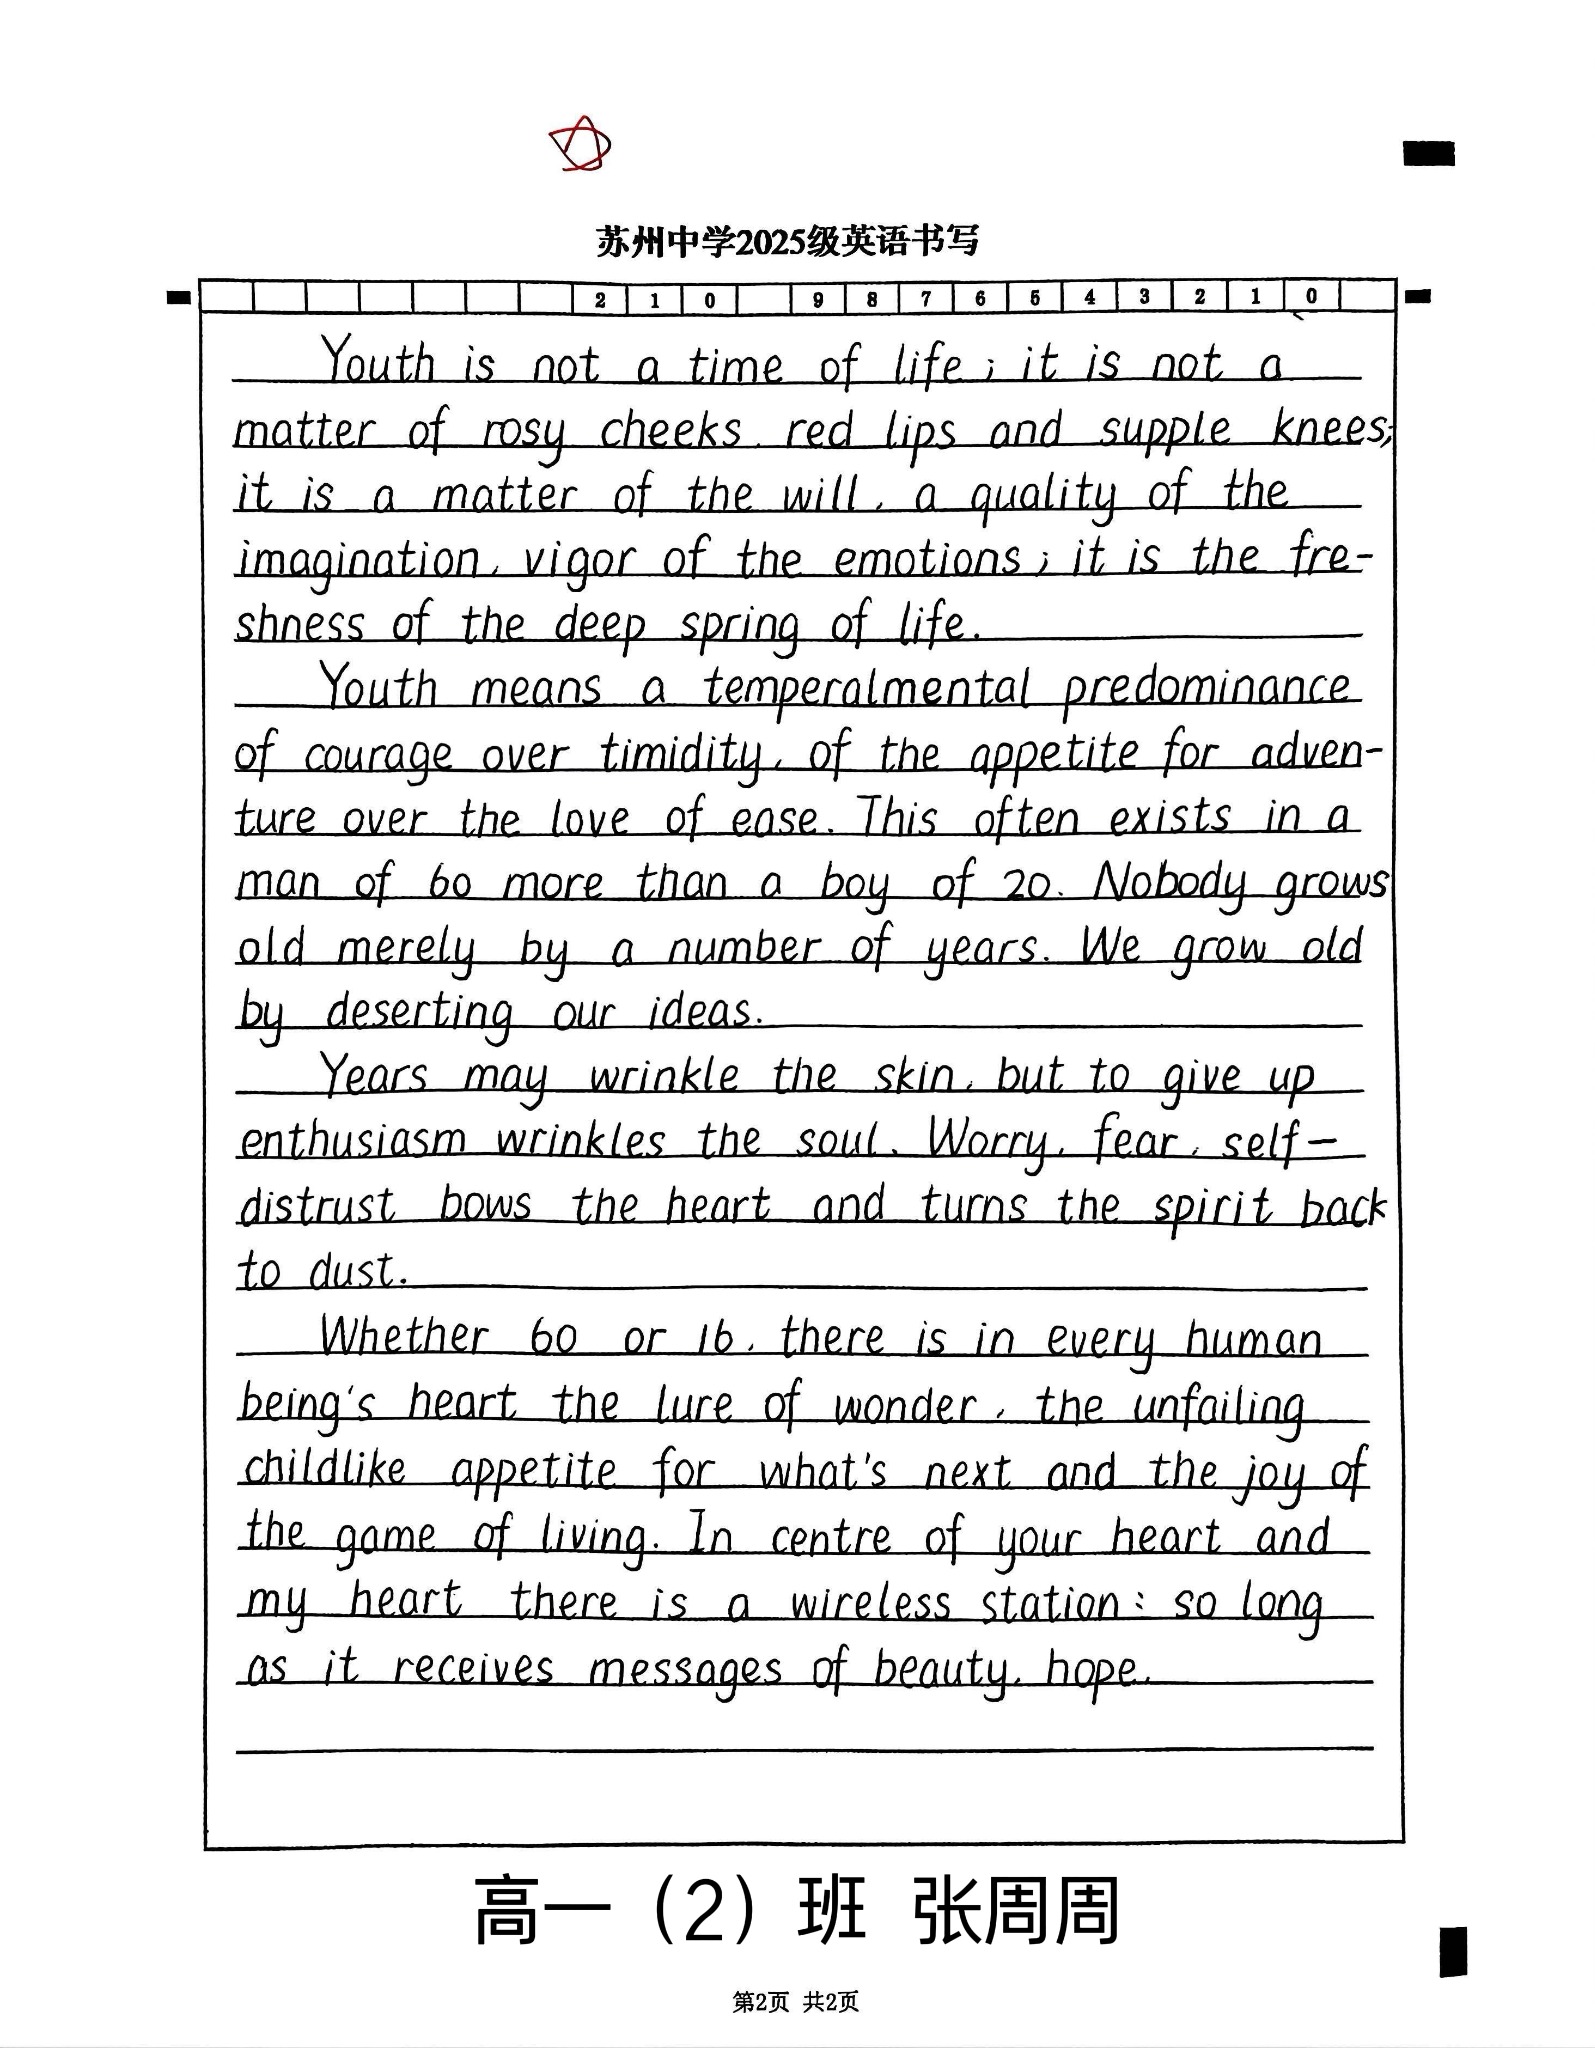 苏州中学2025级英语书写
2 1 0 9 8 7 6 5 4 3 2 1 0
Youth is not a time of life; it is not a
matter of rosy cheeks, red lips and supple knees;
it is a matter of the will, a quality of the
imagination, vigor of the emotions; it is the fre-
shness of the deep spring of life.
Youth means a temperalmental predominance
of courage over timidity, of the appetite for adven-
ture over the love of ease. This often exists in a
man of 60 more than a boy of 20. Nobody grows
old merely by a number of years. We grow old
by deserting our ideas.
Years may wrinkle the skin, but to give up
enthusiasm wrinkles the soul. Worry, fear, self-
distrust bows the heart and turns the spirit back
to dust.
Whether 60 or 16, there is in every human
being's heart the lure of wonder, the unfailing
childlike appetite for what's next and the joy of
the game of living. In centre of your heart and
my heart there is a wireless station: so long
as it receives messages of beauty, hope.
高一（2）班 张周周
第2页 共2页